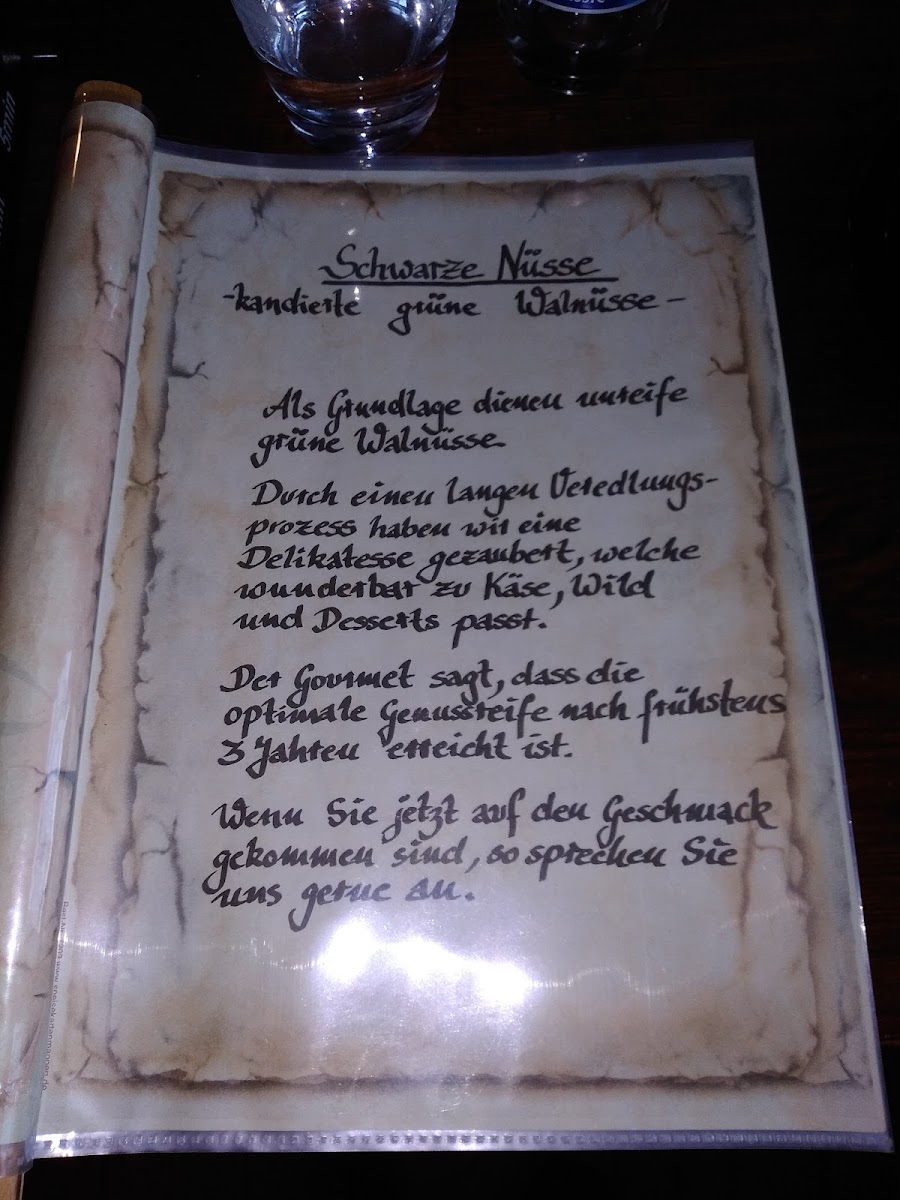 Schwarze Nüsse
-kandierte grüne Walnüsse-
Als Grundlage dienen unreife
grüne Walnüsse.
Durch einen langen Veredlungs-
prozess haben wir eine
Delikatesse gezaubert, welche
wunderbar zu Käse, Wild
und Desserts passt.
Der Gourmet sagt, dass die
optimale Genussreife nach frühstens
3 Jahren erreicht ist.
Wenn Sie jetzt auf den Geschmack
gekommen sind, so sprechen Sie
uns gerne an.
5min